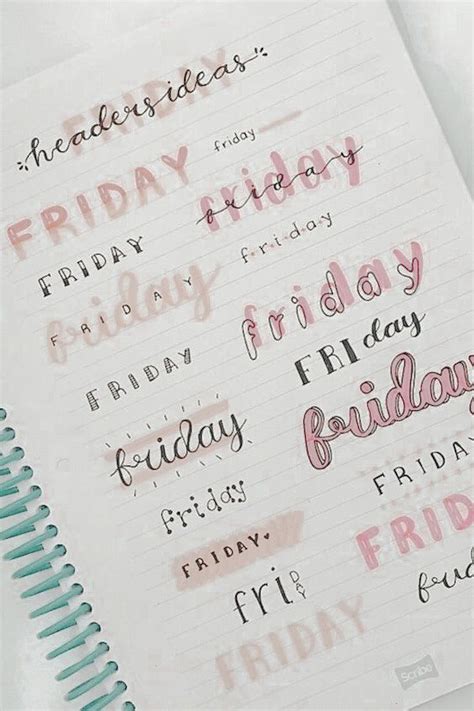 FRIDAY
headers ideas
friday
FRIDAY
friday
friday
FRIDAY
f.r.i.d.a.y
friday
FRIDAY
friday
FRIday
FRIDAY
friday
friday
FRIDAY
friday
FRIDAY
FRIDAY♥
friDAY
FRIDAY
Scribe